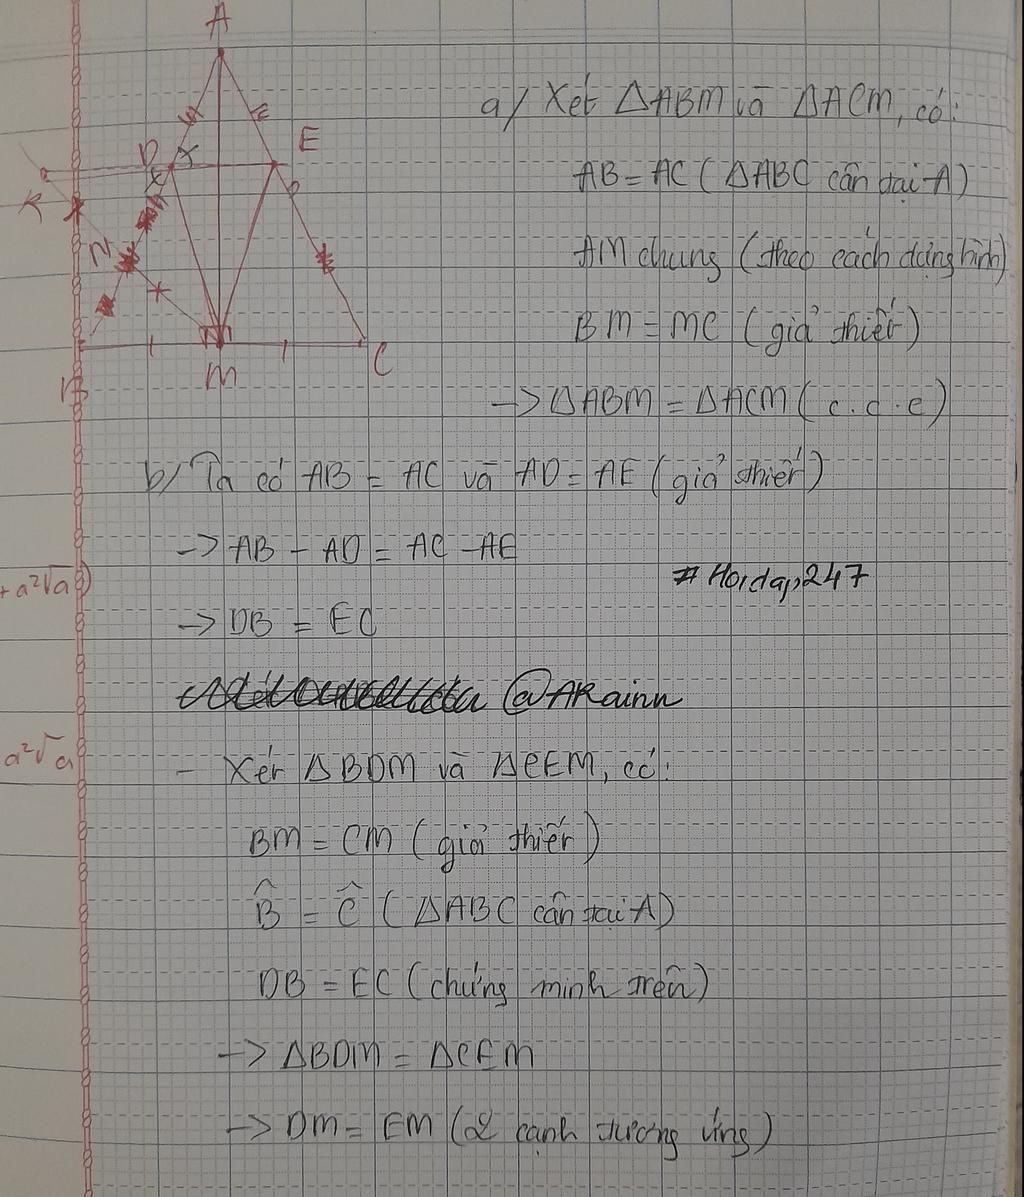 A
a/ Xét ΔABM và ΔACM, có:
D E
AB = AC ( ΔABC cân tại A)
K
N
AM chung (theo cách dựng hình)
BM = MC (giả thiết)
B M C
-> ΔABM = ΔACM ( c.c.c)
b/ Ta có AB = AC và AD = AE (giả thiết)
-> AB - AD = AC - AE
+ a²√a)
# Hoidap247
-> DB = EC
@ARainn
a²√a
- Xét ΔBDM và ΔCEM, có:
BM = CM (giả thiết)
B̂ = Ĉ ( ΔABC cân tại A)
DB = EC (chứng minh trên)
-> ΔBDM = ΔCEM
-> DM = EM (2 cạnh tương ứng)